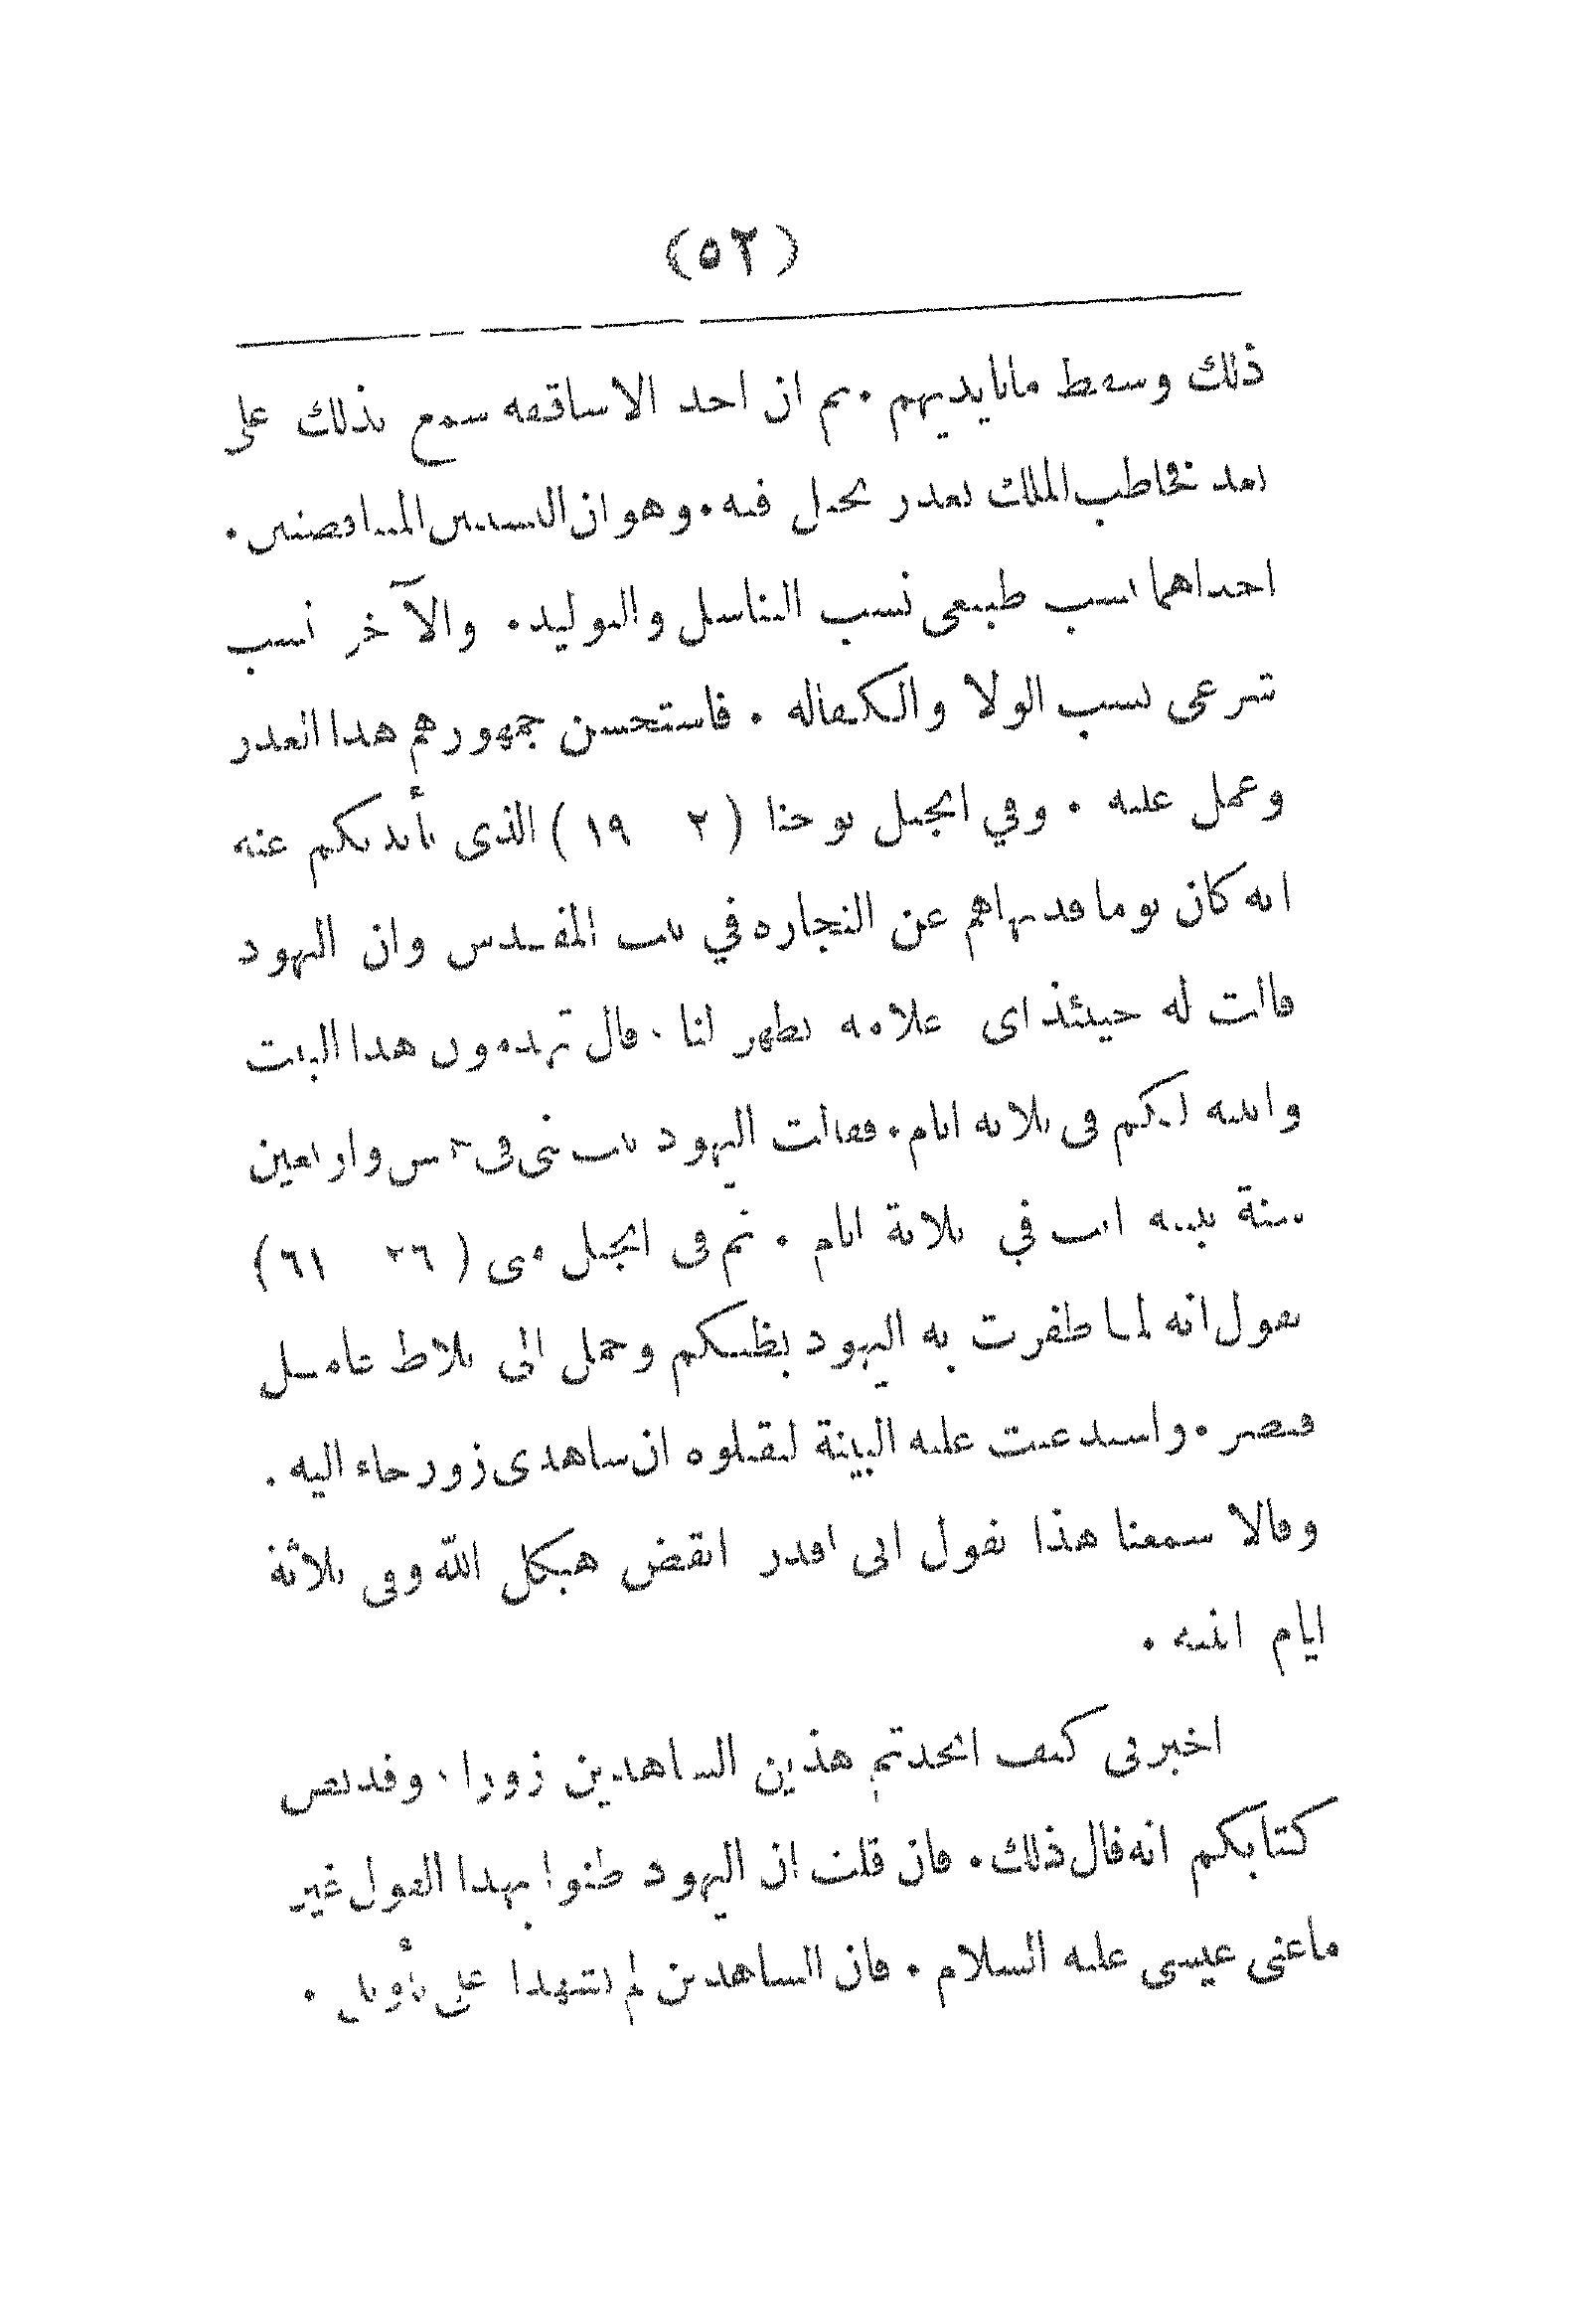 (٥٢)
ذلك وسقط مابايديهم . ثم ان احد الاساقفه سمع بذلك على
بعد فخاطب الملك بعذر تحيل فيه . وهو ان النسبتين المتناقضتين .
احداهما نسب طبيعى نسب التناسل والتوليد . والآخر نسب
شرعى نسب الولا والكفاله . فاستحسن جمهورهم هذا العذر
وعمل عليه . وفي انجيل يوحنا (٢ ١٩) الذى بأيديكم عنه
انه كان يوما قد نهاهم عن التجاره في بيت المقدس وان اليهود
قالت له حينئذ اى علامه تظهر لنا . قال تهدمون هذا البيت
وابنيه لكم فى ثلاثه ايام . فقالت اليهود بيت بنى فى خمس واربعين
سنة تبنيه انت في ثلاثة ايام . ثم فى انجيل متى (٢٦ ٦١)
يقول انه لما ظفرت به اليهود بظنكم وحمل الى بلاط عامل
قيصر . واستدعيت عليه البينة ليقتلوه ان شاهدى زور جاء اليه .
وقالا سمعنا هذا يقول انى اقدر انقض هيكل الله وفى ثلاثة
ايام ابنيه .
اخبرنى كيف اتخذتم هذين الشاهدين زورا . وقد نص
كتابكم انه قال ذلك . فان قلت ان اليهود ظنوا بهذا القول غير
ماعنى عيسى عليه السلام . فان الشاهدين لم يشهدا على تأويل .